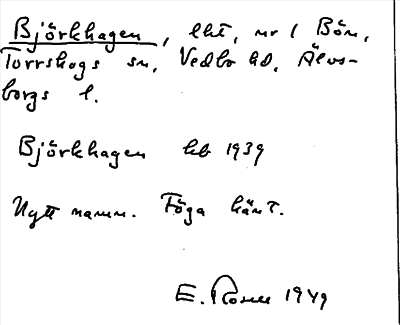 Björkhagen, lht, nr 1 Bön,
Torrskogs sn, Vedbo hd, Älvs-
borgs l.
Björkhagen hb 1939
Nytt namn. Föga känt.
E. Rosell 1949